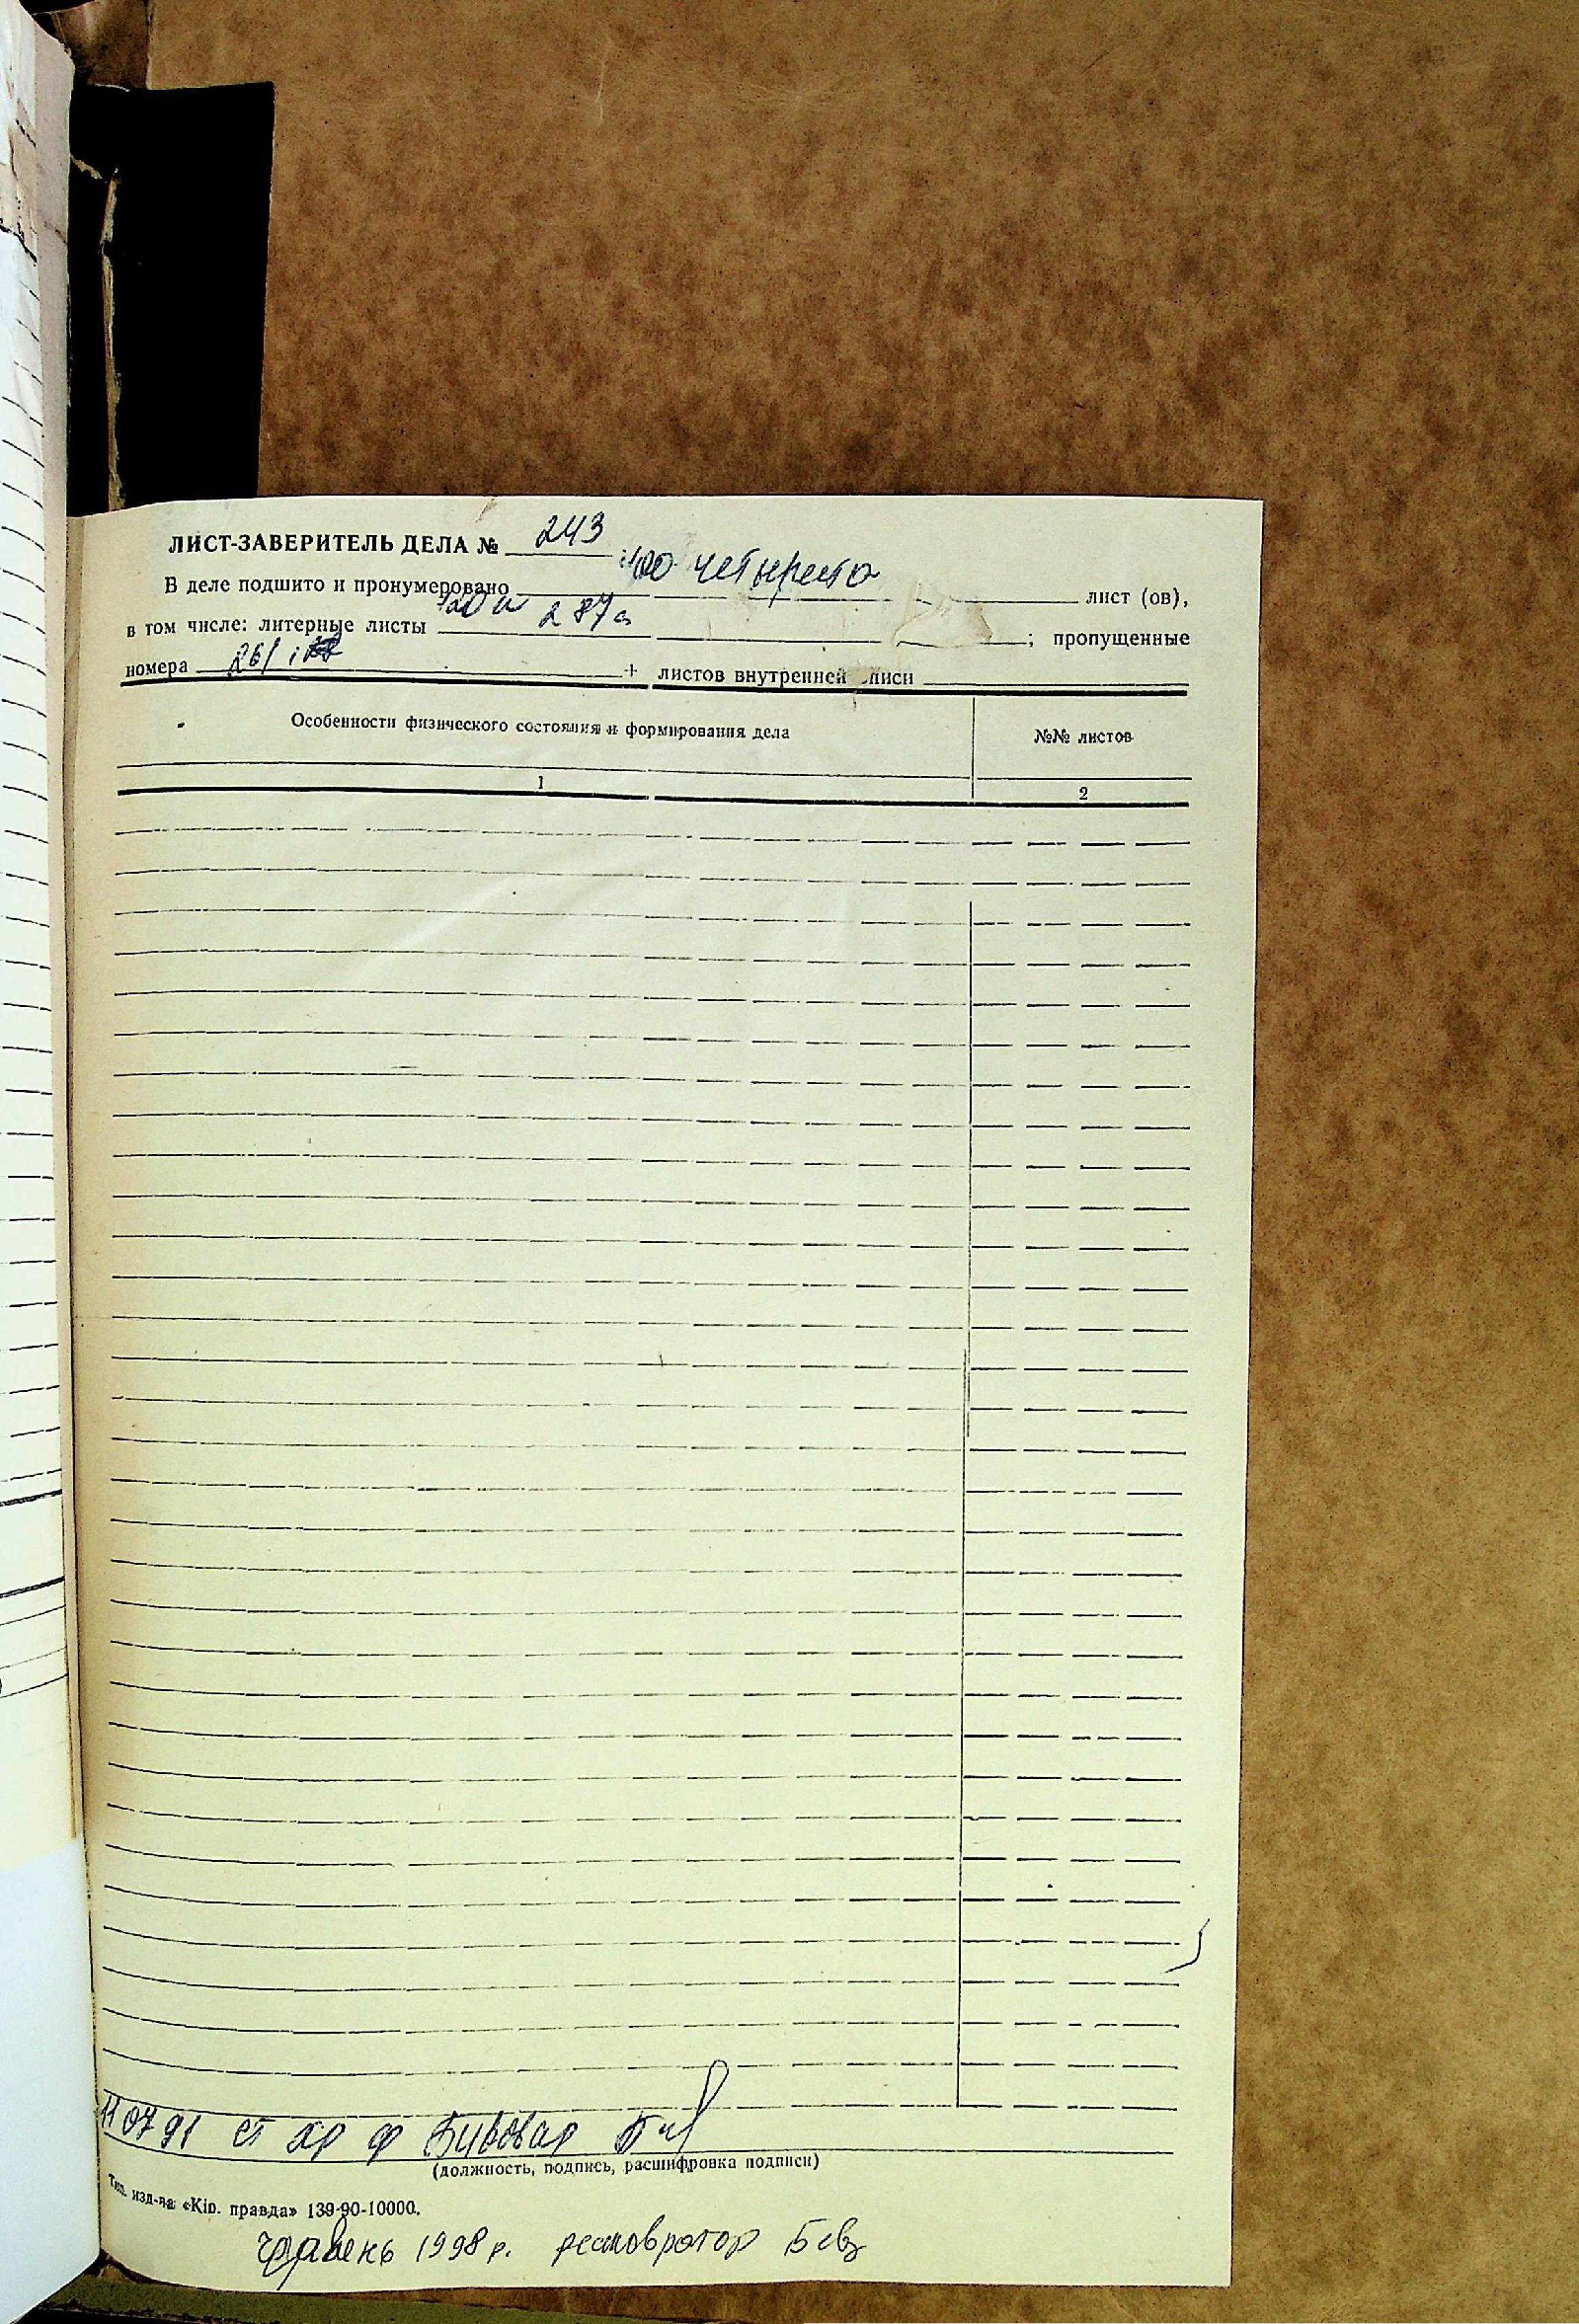 ЛИСТ-ЗАВЕРИТЕЛЬ ДЕЛА № 243
В деле подшито и пронумеровано 400 четыреста лист (ов),
в том числе: литерные листы 287а ; пропущенные
номера 261 + листов внутренней описи
Особенности физического состояния и формирования дела №№ листов
1 2
11 07 91 ст хр ф
(должность, подпись, расшифровка подписи)
Тип. изд-ва «Кір. правда» 139-90-10000.
травень 1998 р. реставратор